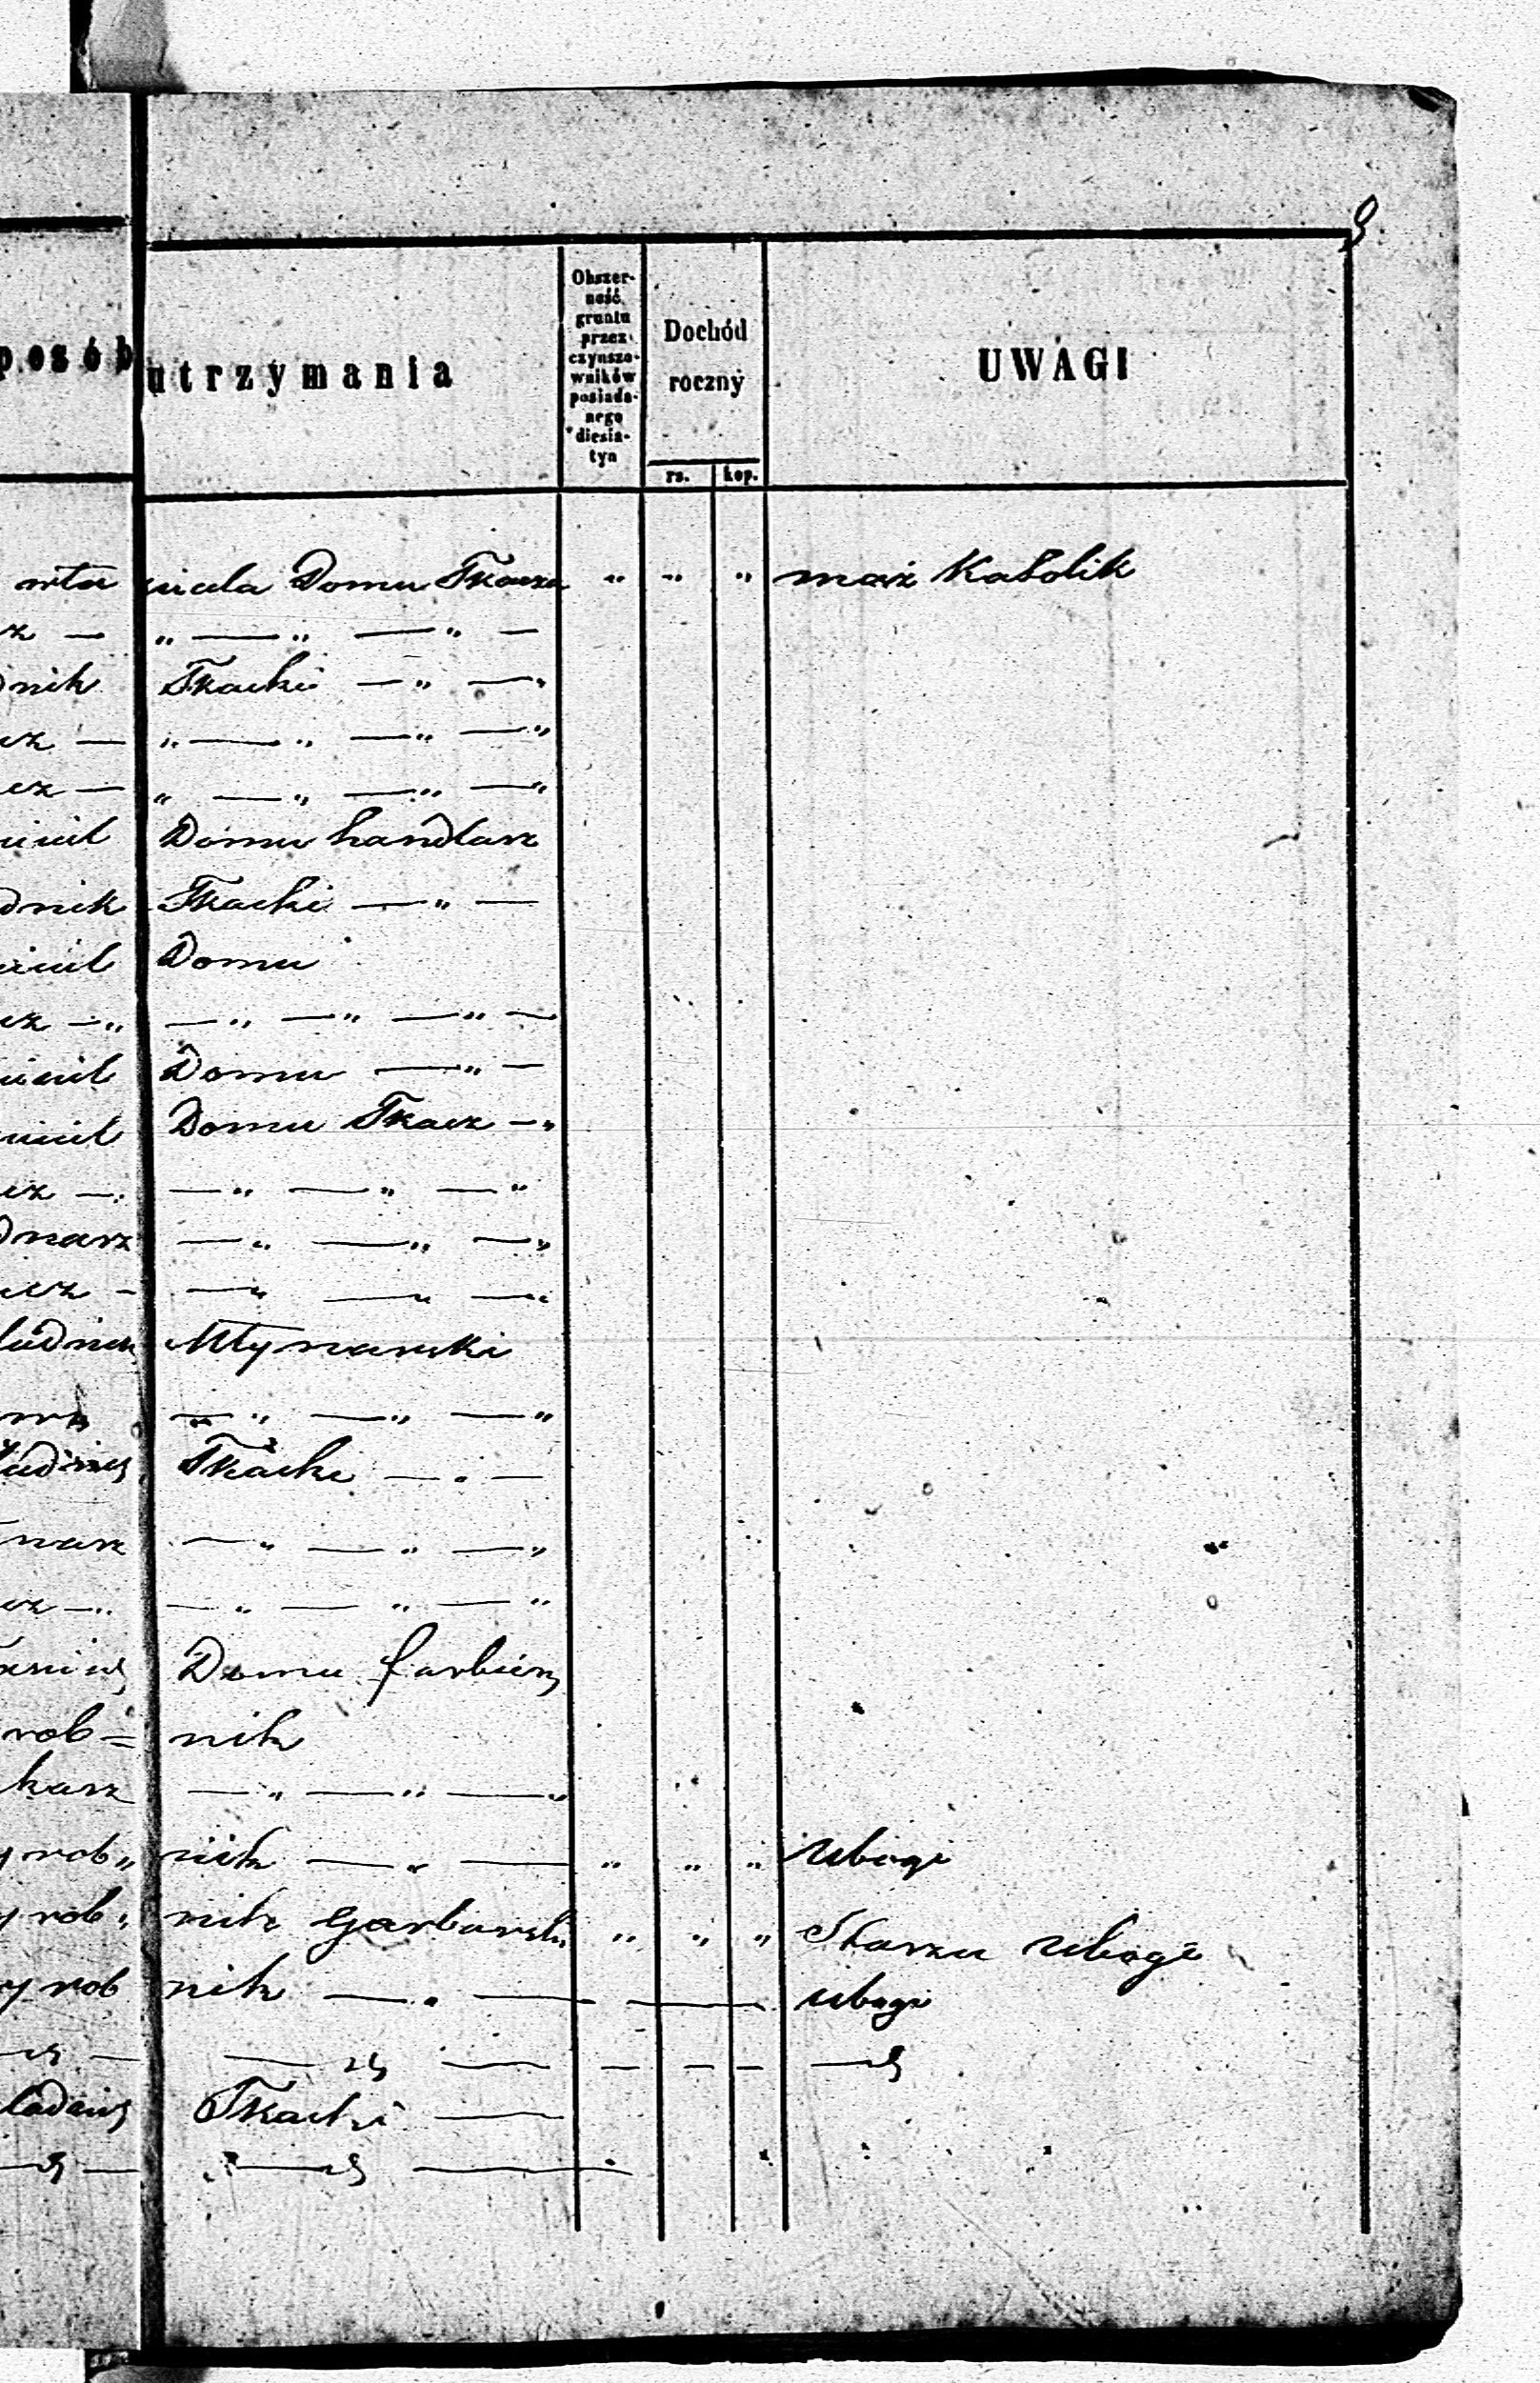 9
posób utrzymania
Obszer-
ność
gruntu
przez
czynszo-
wników
posiada-
nego
diesia-
tyn
Dochód
roczny
rs. kop.
UWAGI
właściciela Domu Tkacza " " " mąż Katolik
cz — „ — „ — „ —
dnik Tkacki — „ — „
cz — „ — „ — „ — „
cz — „ — „ — „ — „
iciel Domu handlarz
dnik Tkacki — „ —
iciel Domu
cz — „ — „ — „ — „ —
iciel Domu — „ —
iciel Domu Tkacz — „
cz — „ — „ — „ — „
dnarz — „ — „ — „
cz — — „ — „ — „
ladnik Młynarski
— „ — „ — „
ladnik Tkacki — „ —
narz — „ — „ — „
cz — „ — „ — „ — „
Domu farbierz
rob= nik
karz — „ — „ — „
yrob„ nik — „ — „ „ „ Ubogi
yrob„ nik Garbarski „ „ „ Ubogi
yrob nik — „ — — Ubogi
— — — — — — —
ladnik Tkacki —
— — — —